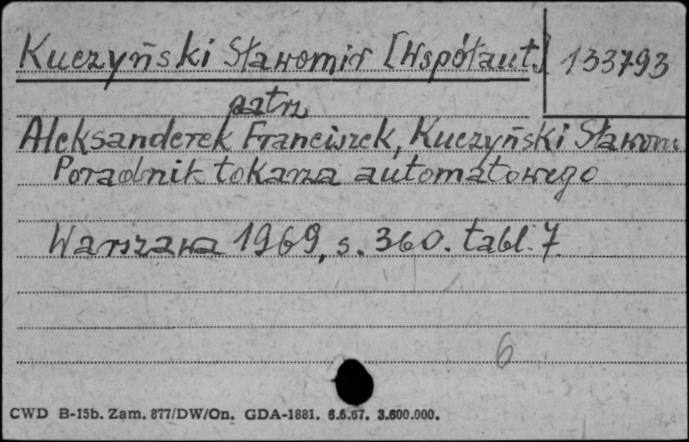 Kuczyński Sławomir [Współaut.] 133793
patrz
Aleksanderek Franciszek, Kuczyński Sławom.
Poradnik tokarza automatowego
Warszawa 1969, s. 360. tabl. 7.
6
CWD B-15b. Zam. 877/DW/On. GDA-1881. 6.6.67. 3.600.000.